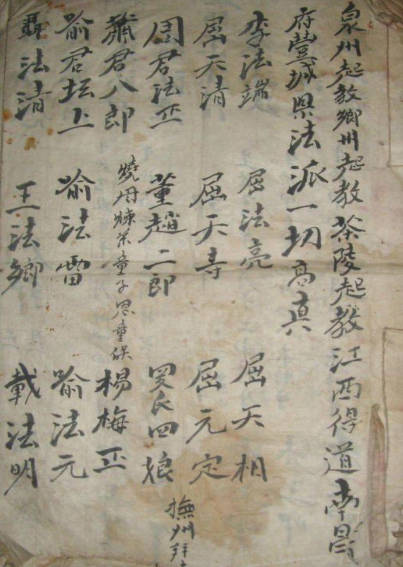 泉州起教鄉州起教茶陵起教江西得道南昌
府豐城県法派一切高真
李法端 屈法亮 屈天相
屈天清 屈天寿 屈元定
周君法正 董趙二郎 罗氏四娘 撫州拜
蕭君八郎 燒丹煉茶童子思童侯 楊梅正
喻君坛上 喻法雷 喻法元
聶法清 王法鄉 載法明